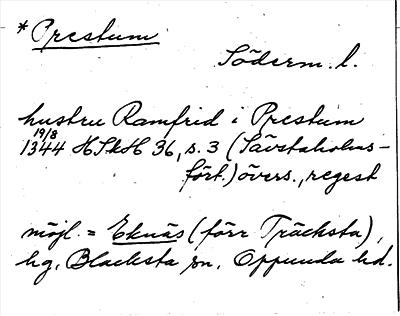 * Prestum
Söderm. l.
hustru Ramfrid i Prestum
19/8
1344 HSkH 36, s. 3 (Sävstaholms-
fört.) övers., regest
möjl. = Eknäs (förr Träcksta),
hg, Blacksta sn, Oppunda hd.